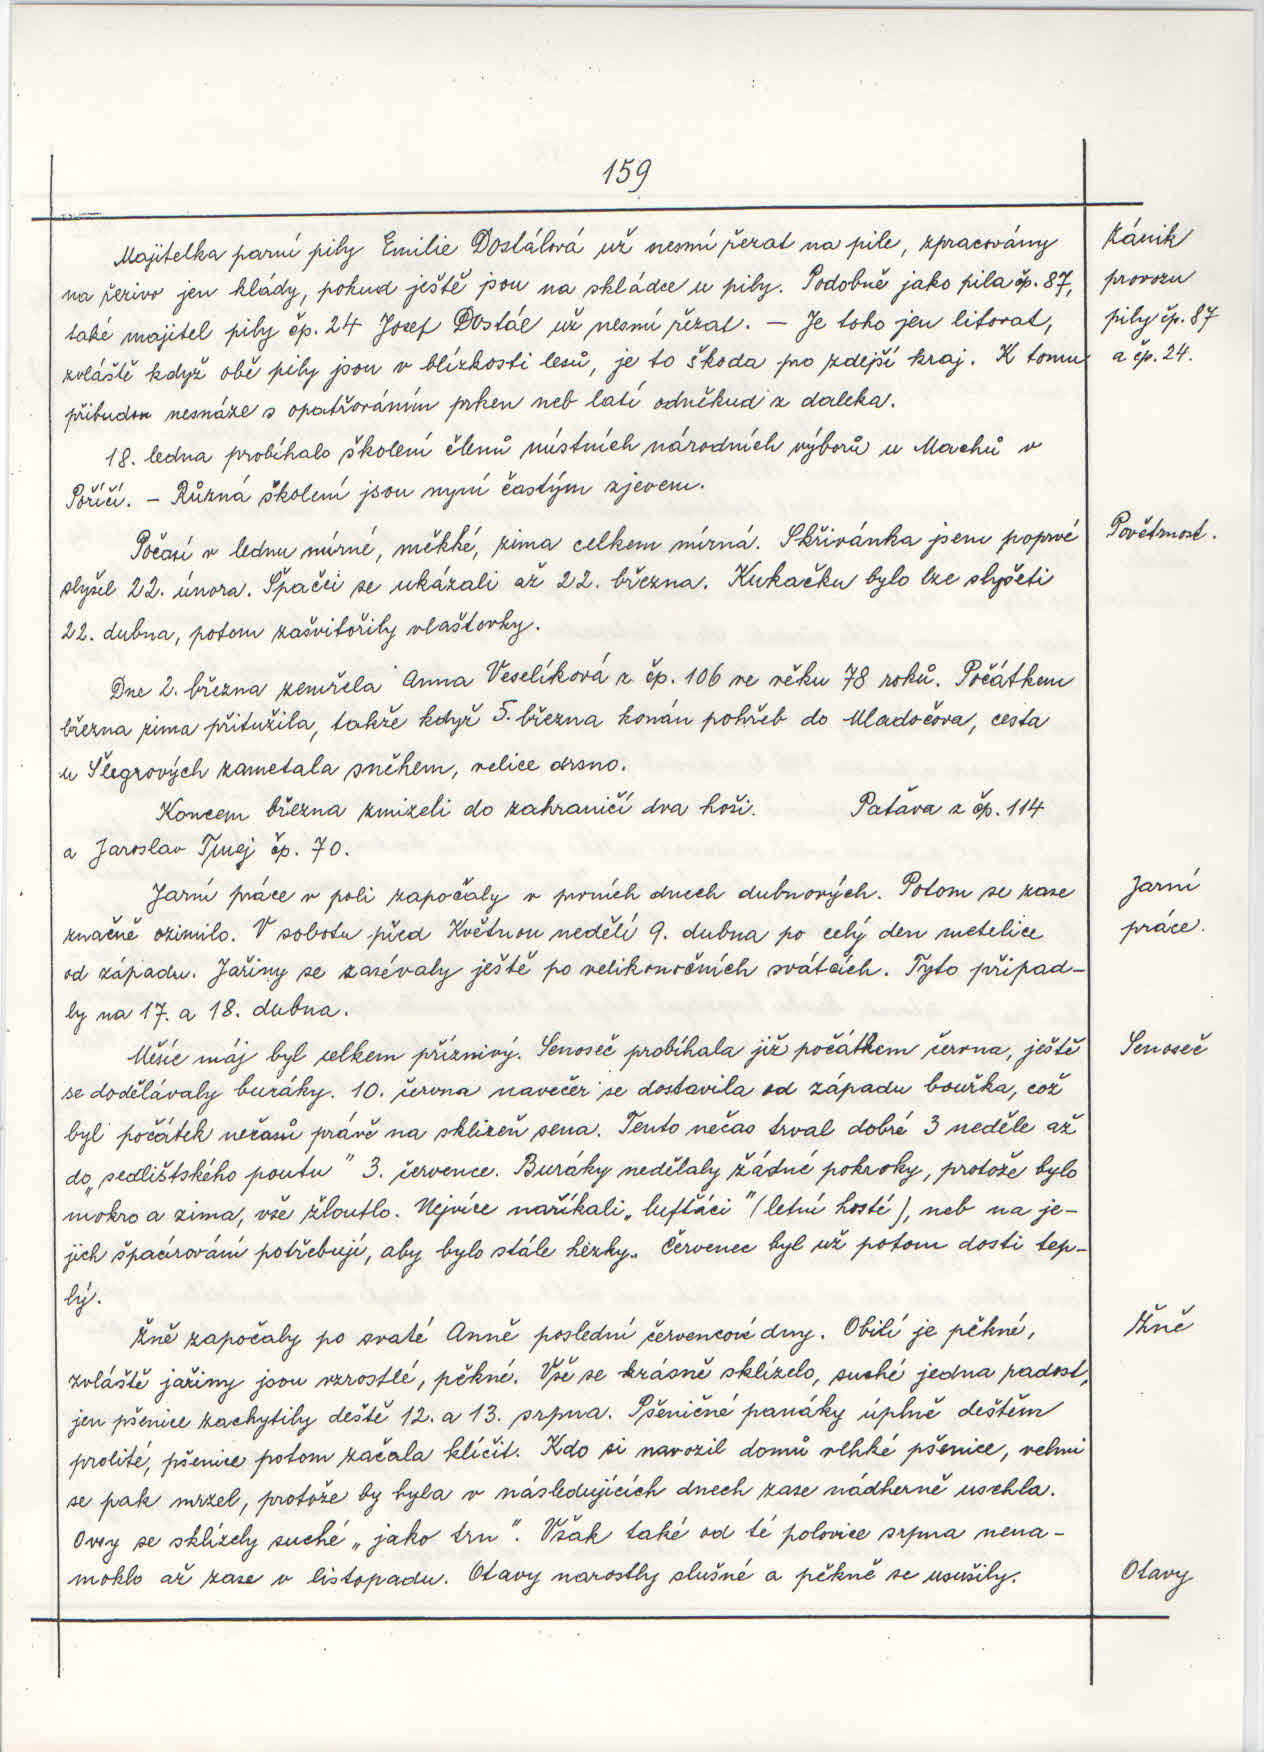 159
Majitelka parní pily Emilie Dostálová už nesmí řezat na pile, zpracovány
na řezivo jen klády, pokud ještě jsou na skládce u pily. Podobně jako pila čp. 87,
také majitel pily čp. 24 Josef Dostál už nesmí řezat. – Je toho jen litovat,
zvláště když obě pily jsou v blízkosti lesů, je to škoda pro zdejší kraj. K tomu
přibudou nesnáze s opatřováním prken neb latí odněkud z daleka.
Zánik
provozu
pily čp. 87
a čp. 24.
18. ledna probíhalo školení členů místních národních výborů u Machů v
Poříčí. – Různá školení jsou nyní častým zjevem.
Počasí v lednu mírné, měkké, zima celkem mírná. Skřivánka jsem poprvé
slyšel 22. února. Špačci se ukázali až 22. března. Kukačku bylo lze slyšeti
22. dubna, potom zašvitořily vlaštovky.
Povětrnost.
Dne 2. března zemřela Anna Veselíková z čp. 106 ve věku 78 roků. Počátkem
března zima přitužila, takže když 5. března konán pohřeb do Mladočova, cesta
u Šlegrových zametala sněhem, velice drsno.
Koncem března zmizeli do zahraničí dva hoši. Patava z čp. 114
a Jaroslav Tmej čp. 70.
Jarní práce v poli započaly v prvních dnech dubnových. Potom se zase
značně ozimilo. V sobotu před Květnou nedělí 9. dubna po celý den metelice
od západu. Jařiny se zasévaly ještě po velikonočních svátcích. Tyto připad-
ly na 17. a 18. dubna.
Jarní
práce.
Měsíc máj byl celkem příznivý. Senoseč probíhala již počátkem června, ještě
se dodělávaly buráky. 10. června navečer se dostavila od západu bouřka, což
byl počátek nečasů právě na sklizeň sena. Tento nečas trval dobré 3 neděle až
do „sedlištského poutu" 3. července. Buráky nedělaly žádné pokroky, protože bylo
mokro a zima, vše žloutlo. Nejvíce naříkali „luftáci" (letní hosté), neb na je-
jich špacírování potřebují, aby bylo stále hezky. Červenec byl už potom dosti tep-
lý.
Senoseč
Žně započaly po svaté Anně poslední červencové dny. Obilí je pěkné,
zvláště jařiny jsou vzrostlé, pěkné. Vše se krásně sklízelo, suché jedna radost,
jen pšenice zachytily deště 12. a 13. srpna. Pšeničné panáky úplně deštěm
prolité, pšenice potom začala klíčit. Kdo si navozil domů vlhké pšenice, velmi
se pak mrzel, protože by byla v následujících dnech zase nádherně uschla.
Ovsy se sklízely suché „jako trn". Však také od té polovice srpna nena-
moklo až zase v listopadu. Otavy narostly slušné a pěkně se usušily.
Žně
Otavy